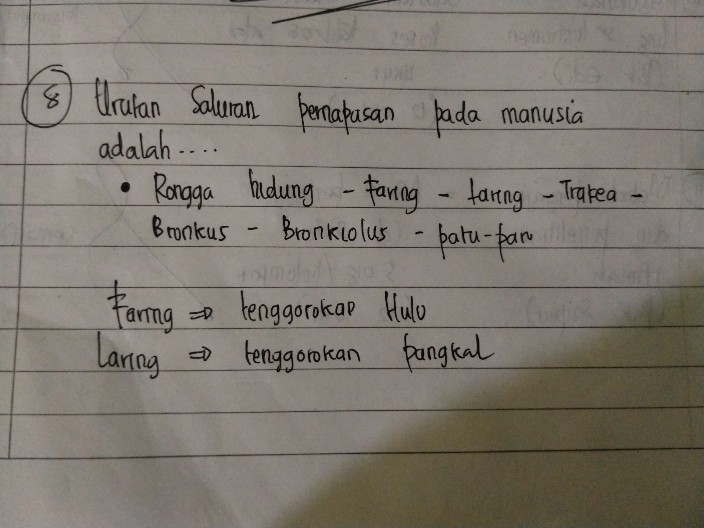 8 Urutan Saluran pernapasan pada manusia
adalah....
• Rongga hidung - Faring - laring - Trakea -
Bronkus - Bronkiolus - paru-paru
Faring ⇒ tenggorokan Hulu
Laring ⇒ tenggorokan pangkal